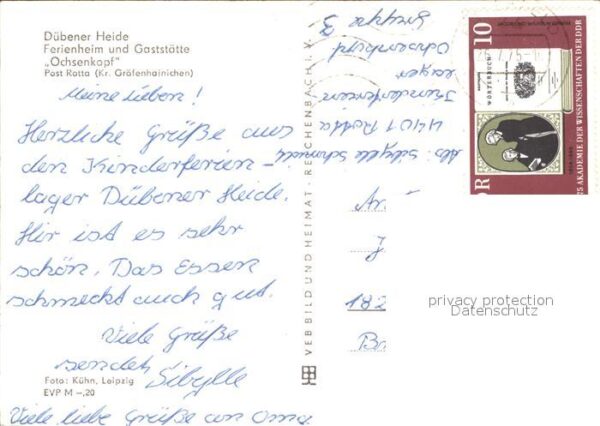 Dübener Heide
Ferienheim und Gaststätte
„Ochsenkopf"
Post Rotta (Kr. Gräfenhainichen)
Meine Lieben!
Herzliche Grüße aus
den Kinderferien-
lager Dübener Heide.
Hir ist es sehr
schön. Das Essen
schmeckt auch gut.
Viele Grüße
sendet
Sibylle
Foto: Kühn, Leipzig
EVP M –,20
Viele liebe Grüße an Oma
VEB BILD UND HEIMAT · REICHENBACH I. V.
Abs: Sibylle Schmidt
4401 Rotta
Kinderferien
lager
Ochsenkopf
Gruppe 3
An
182
10
WÖRTERBUCH
275 AKADEMIE DER WISSENSCHAFTEN DER DDR
privacy protection
Datenschutz